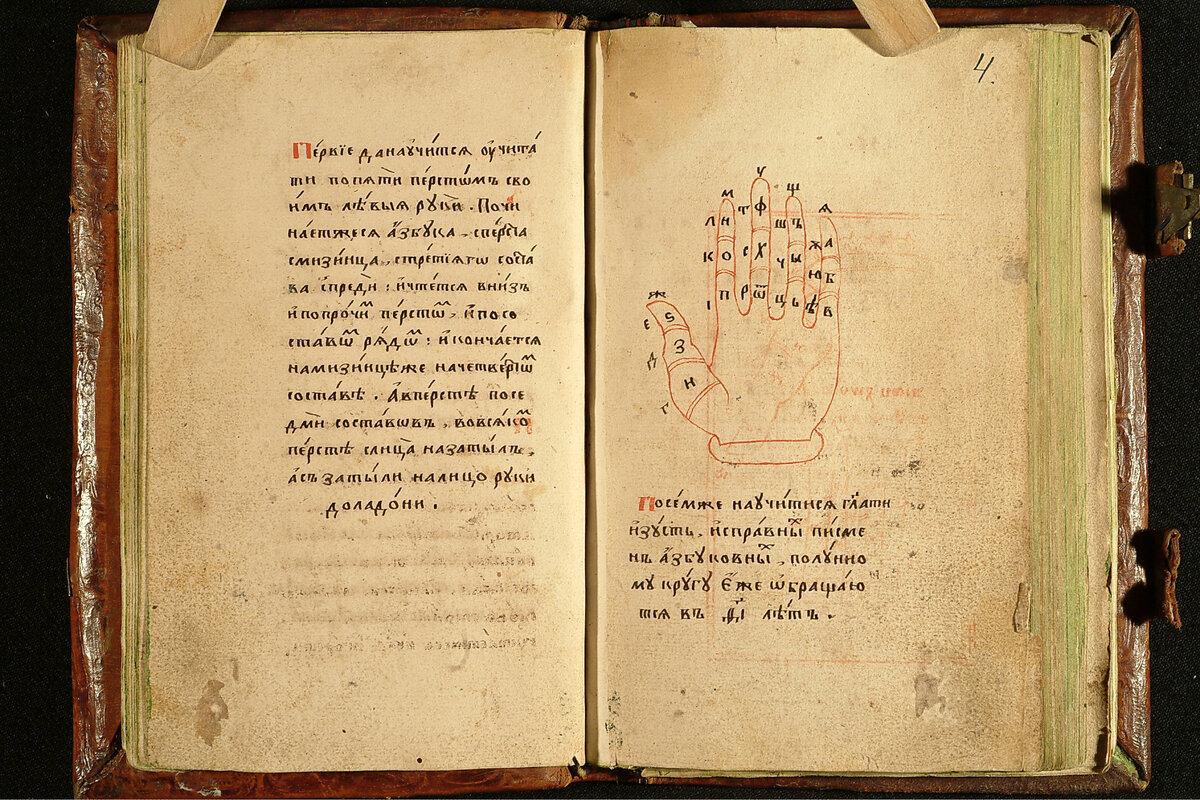 Пе́рвїе да научи́тся оучита́
ти по пяти пе́рстѡмъ сво
и́мъ лѣ́выя руки́. Почи
на́етжеся а́збука, с пе́рста
с мизи́нца, с тре́тїягѡ соста́
ва спреди: и чтется внизъ
и по про́чи̑ пе́рстѡ̑, и по со
ста́вѡ̑ ря́дѡ̑: и конча́ется
на мизи́нцѣ же на четве́ртѡ̑
соста́вѣ. А в пе́рстѣ по се
дми соста́вовъ, во вся́ко̑
пе́рстѣ с лица́ на заты́лъ,
а съ заты́ли на лицо руки
до ладо́ни.
4.
У
М Ѱ
Л И Т Ф Ш Ъ Я
К О С Х Ч Ы Ж А
І П Р Ѿ Ц Ь Ю Б
Ѣ В
Ж
Е Ѕ
Д З
Г И
По се́м же научи́тися гл҃ати
изу́сть, испра́вны̑ пи́сме
нъ а́збуковны̑, по лу́нно
му кру́гу Е́же ѡ҆браща́ю
тся въ ДІ лѣ́тъ.